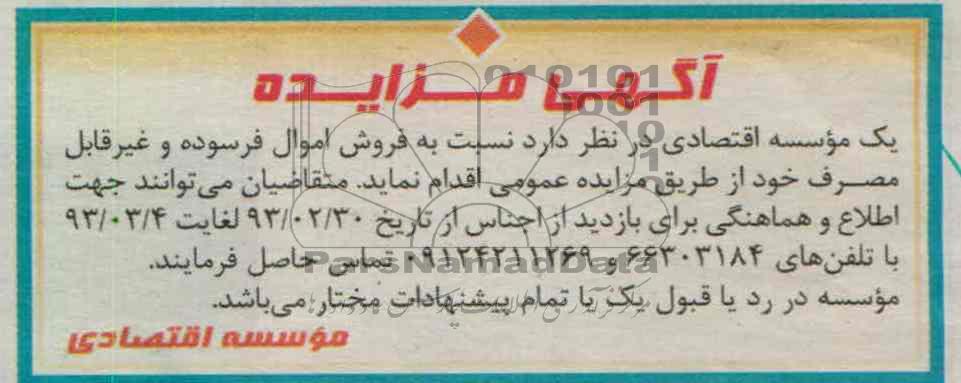 آگهی مزایده
یک مؤسسه اقتصادی در نظر دارد نسبت به فروش اموال فرسوده و غیرقابل
مصرف خود از طریق مزایده عمومی اقدام نماید. متقاضیان می‌توانند جهت
اطلاع و هماهنگی برای بازدید از اجناس از تاریخ ۹۳/۰۲/۳۰ لغایت ۹۳/۰۳/۴
با تلفن‌های ۶۶۳۰۳۱۸۴ و ۰۹۱۲۴۲۱۱۲۶۹ تماس حاصل فرمایند.
ParsNamadData
مؤسسه در رد یا قبول یک یا تمام پیشنهادات مختار می‌باشد.
مؤسسه اقتصادی